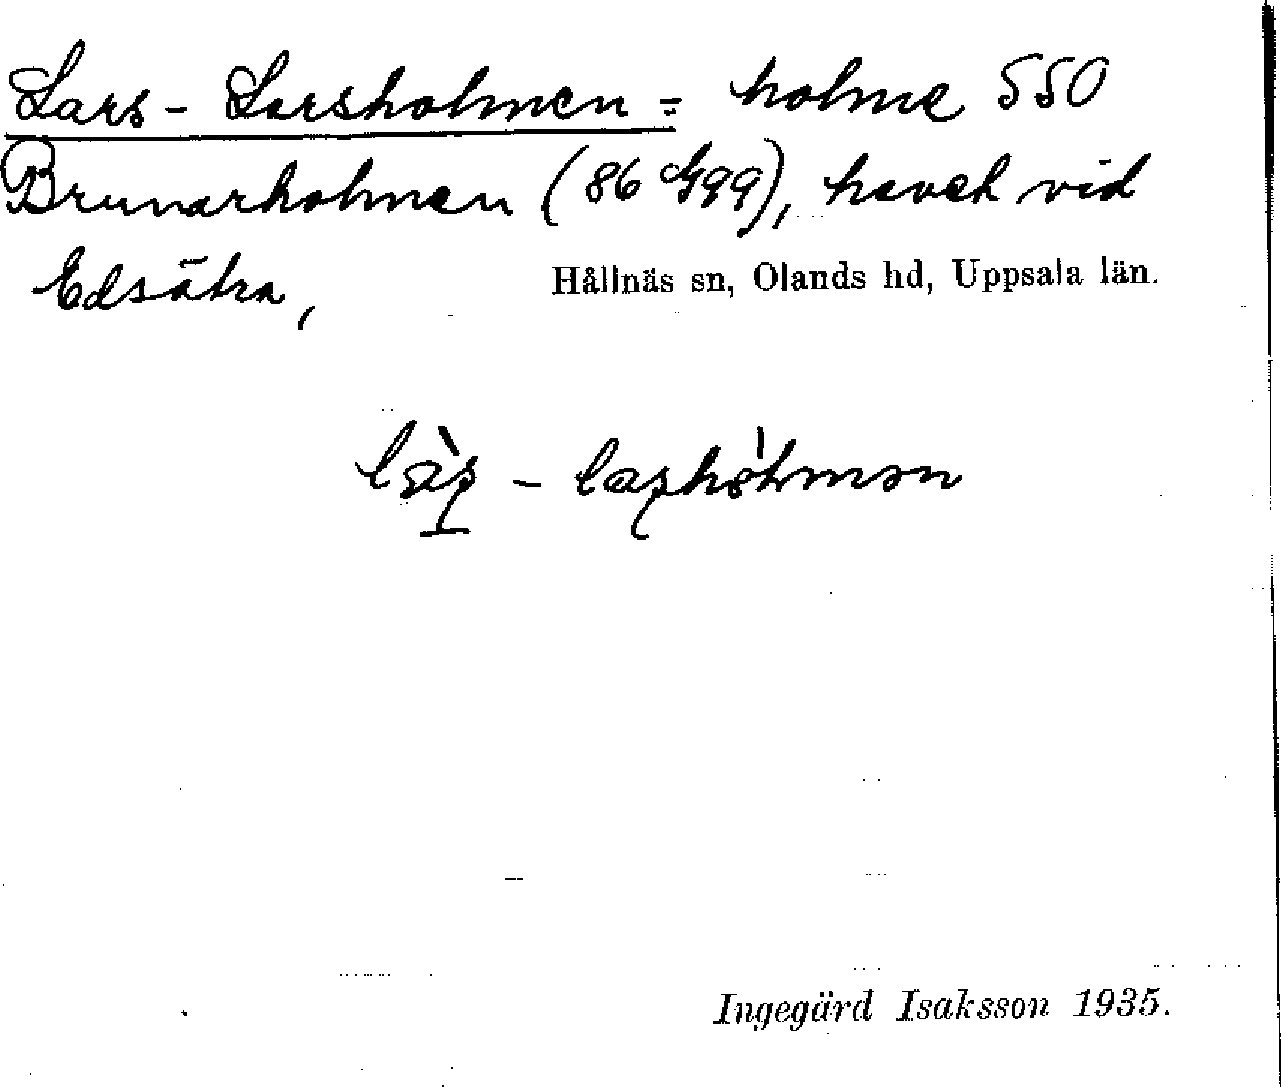 Lars-Larsholmen = holme SSO
Brunarholmen (86 Ggg), havet vid
Edsätra, Hållnäs sn, Olands hd, Uppsala län.
Ingegärd Isaksson 1935.